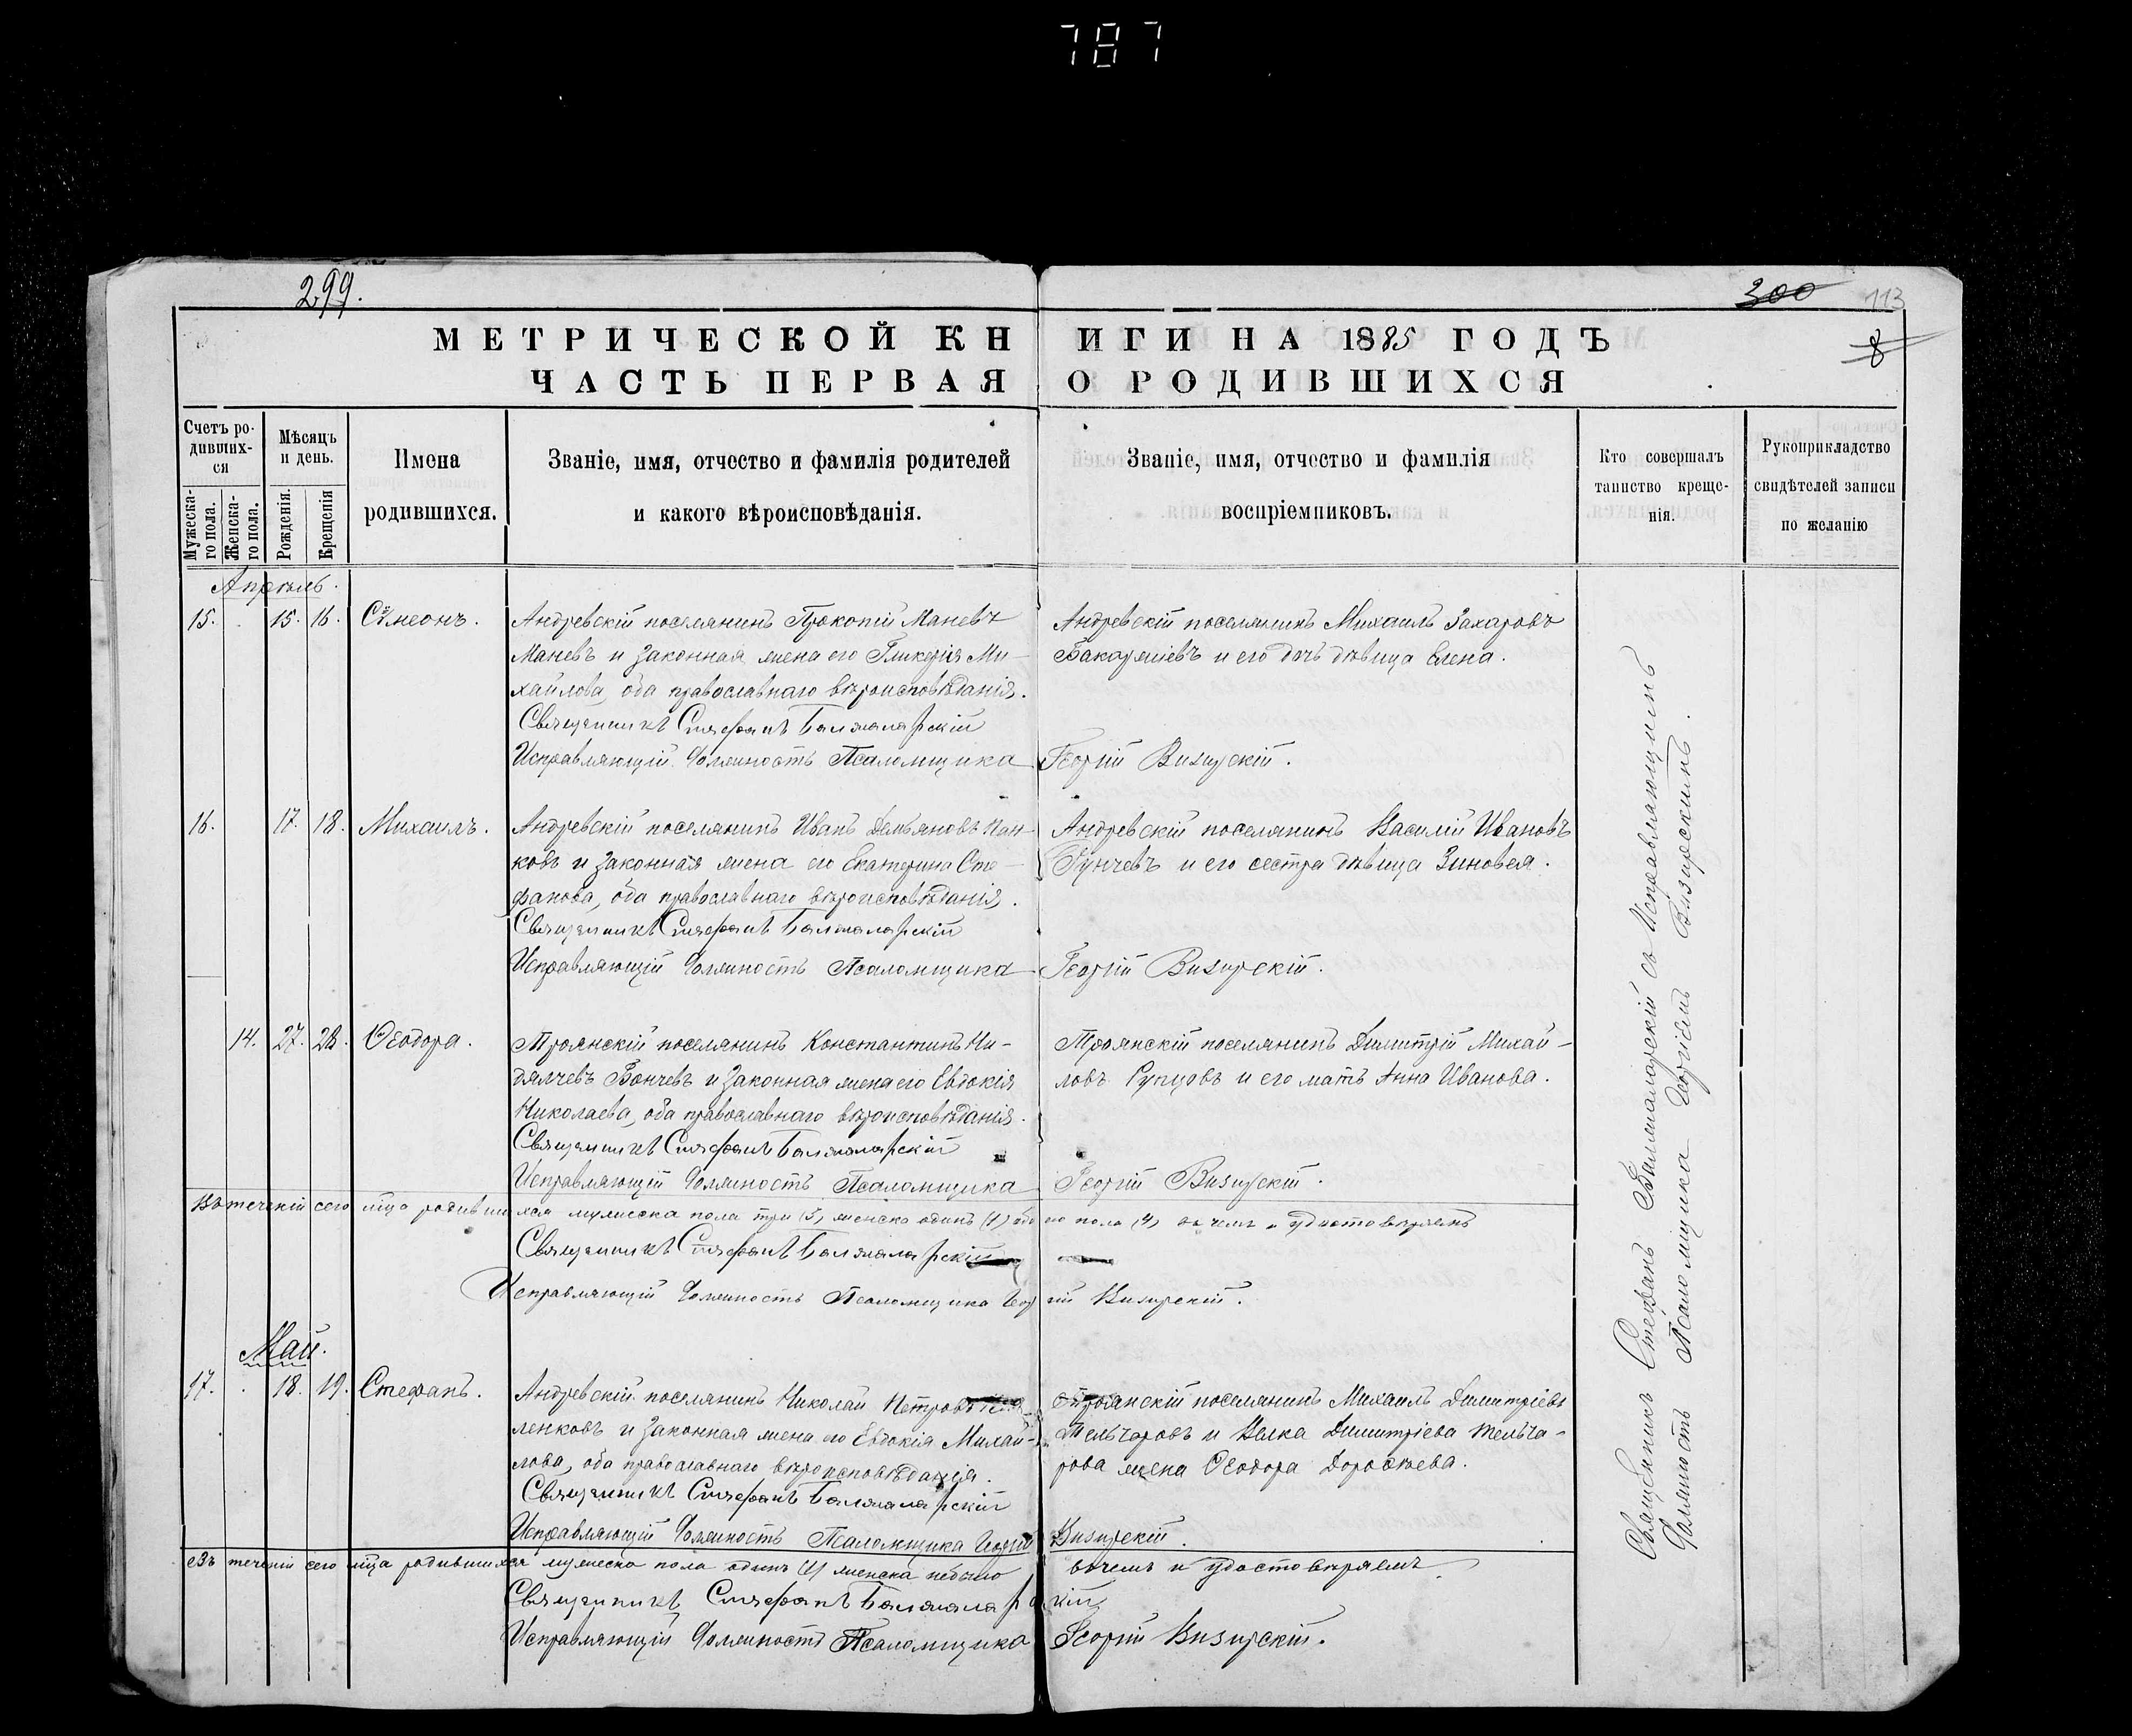 787
299.
300
113
8
МЕТРИЧЕСКОЙ КНИГИ НА 1885 ГОДЪ
ЧАСТЬ ПЕРВАЯ О РОДИВШИХСЯ
Счетъ родившихся
Мужескаго пола.
Женскаго пола.
Мѣсяцъ и день.
Рожденія.
Крещенія
Имена родившихся.
Званіе, имя, отчество и фамилія родителей
и какого вѣроисповѣданія.
Званіе, имя, отчество и фамилія
воспріемниковъ.
Кто совершалъ таинство крещенія.
Рукоприкладство свидѣтелей записи по желанію
Апрѣль.
15. 15. 16. Сѵмеонъ.
Андревскій поселянинъ Прокопій Маневъ
Маневъ и законная жена его Гликерія Ми-
хайлова, оба православнаго вѣроисповѣданія.
Священникъ Стефанъ Балжаларскій
Исправляющій должность Псаломщика Георгій Визирскій.
Андревскій поселянинъ Михаилъ Захаровъ
и его дочь дѣвица Елена.
16. 17. 18. Михаилъ.
Андревскій поселянинъ Иванъ Демьяновъ Пан-
ковъ и законная жена его Екатерина Сте-
фанова, оба православнаго вѣроисповѣданія.
Священникъ Стефанъ Балжаларскій
Исправляющій должность Псаломщика Георгій Визирскій.
Андревскій поселянинъ Василій Ивановъ
и его сестра дѣвица Зиновея.
14. 27. 28. Ѳеодора.
Троянскій поселянинъ Константинъ Не-
дялчевъ Бончевъ и законная жена его Евдокія
Николаева, оба православнаго вѣроисповѣданія.
Священникъ Стефанъ Балжаларскій
Исправляющій должность Псаломщика Георгій Визирскій.
Троянскій поселянинъ Димитрій Михай-
ловъ Рупцовъ и его мать Анна Иванова.
Въ теченіи сего мѣсяца родившихся мужеска пола три (3) женска одинъ (1) обоего пола (4) въ чемъ и удостовѣряемъ
Священникъ Стефанъ Балжаларскій
Исправляющій должность Псаломщика Георгій Визирскій.
Май.
17. 18. 19. Стефанъ.
Андревскій поселянинъ Николай Петровъ
ленковъ и законная жена его Евдокія Михай-
лова, оба православнаго вѣроисповѣданія.
Священникъ Стефанъ Балжаларскій
Исправляющій должность Псаломщика Георгій Визирскій.
Троянскій поселянинъ Михаилъ Димитріевъ
Тельчаровъ и Димитріева Тельча-
рова жена Ѳеодора Дороѳеева.
Въ теченіи сего мѣсяца родившихся мужеска пола одинъ (1) женска небыло въ чемъ и удостовѣряемъ
Священникъ Стефанъ Балжаларскій
Исправляющій должность Псаломщика Георгій Визирскій.
Священникъ Стефанъ Балжаларскій съ Исправляющимъ
должность Псаломщика Георгіемъ Визирскимъ.